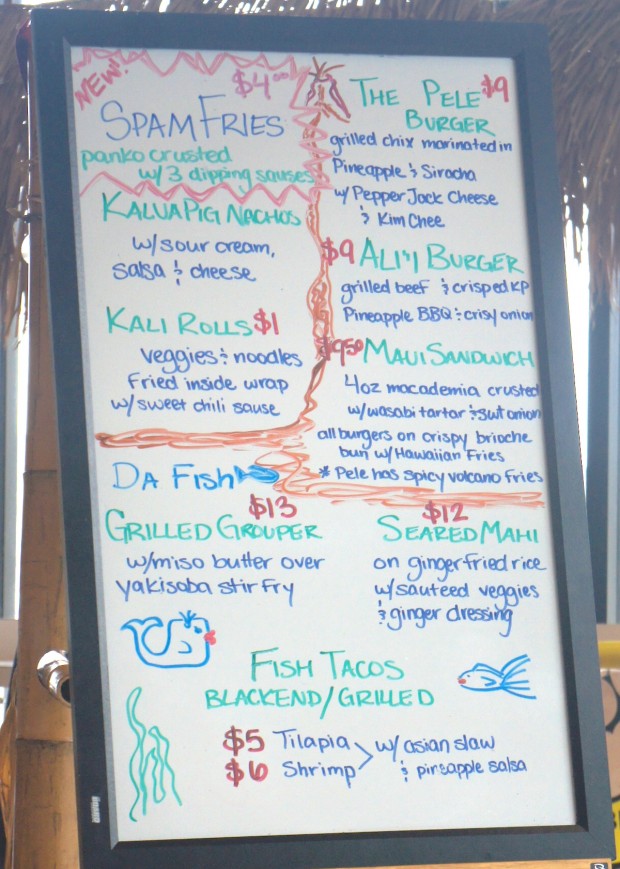 NEW!
$4.00
SPAM FRIES
panko crusted
w/ 3 dipping sauses
KALUA PIG NACHOS
w/ sour cream,
salsa & cheese
KALI ROLLS $1
veggies & noodles
fried inside wrap
w/ sweet chili sause
THE PELE $9
BURGER
grilled chix marinated in
Pineapple & Siracha
w/ Pepper Jack Cheese
& Kim Chee
$9 ALI'I BURGER
grilled beef & crisped KP
Pineapple BBQ & crisy onion
$9.50 MAUI SANDWICH
4oz macademia crusted
w/ wasabi tartar & swt onion
all burgers on crispy brioche
bun w/ Hawaiian Fries
* Pele has spicy volcano fries
DA FISH
$13
GRILLED GROUPER
w/ miso butter over
yakisoba stir fry
$12
SEARED MAHI
on ginger fried rice
w/ sauteed veggies
& ginger dressing
FISH TACOS
BLACKEND/GRILLED
$5 Tilapia
$6 Shrimp
w/ asian slaw
& pineapple salsa